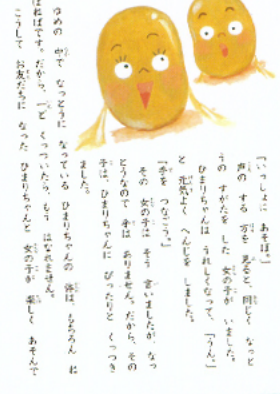 「いっしょに あそぼ。」
声の する 方を 見ると、同じく なっと
うの すがたを した 女の子が いました。
ひまりちゃんは うれしくなって、「うん。」
と 元気よく へんじを しました。
「手を つなごう。」
その 女の子は そう 言いましたが、なっ
とうなので 手は ありません。だから、その
子は、ひまりちゃんに ぴったりと くっつき
ました。
ゆめの 中で なっとうに なっている ひまりちゃんの 体は、もちろん に
ねばです。だから、一ど くっついたら、もう はなれません。
こうして お友だちに なった ひまりちゃんと 女の子が 楽しく あそんで